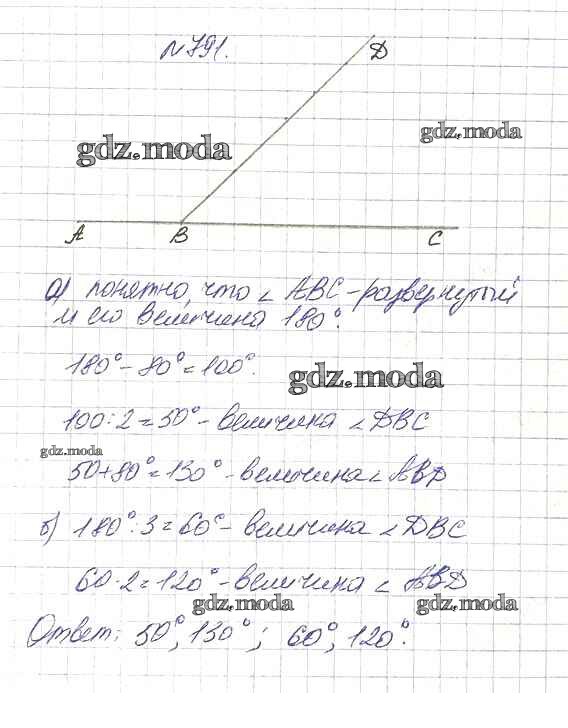 №791.
D
gdz.moda
gdz.moda
A B C
а) понятно, что ∠ ABC - развернутый
и его величина 180°.
180° - 80° = 100°.
gdz.moda
100 : 2 = 50° - величина ∠ DBC
gdz.moda
50 + 80° = 130° - величина ∠ ABD
б) 180° : 3 = 60° - величина ∠ DBC
60 · 2 = 120° - величина ∠ ABD
gdz.moda
gdz.moda
Ответ: 50°, 130° ; 60°, 120°.